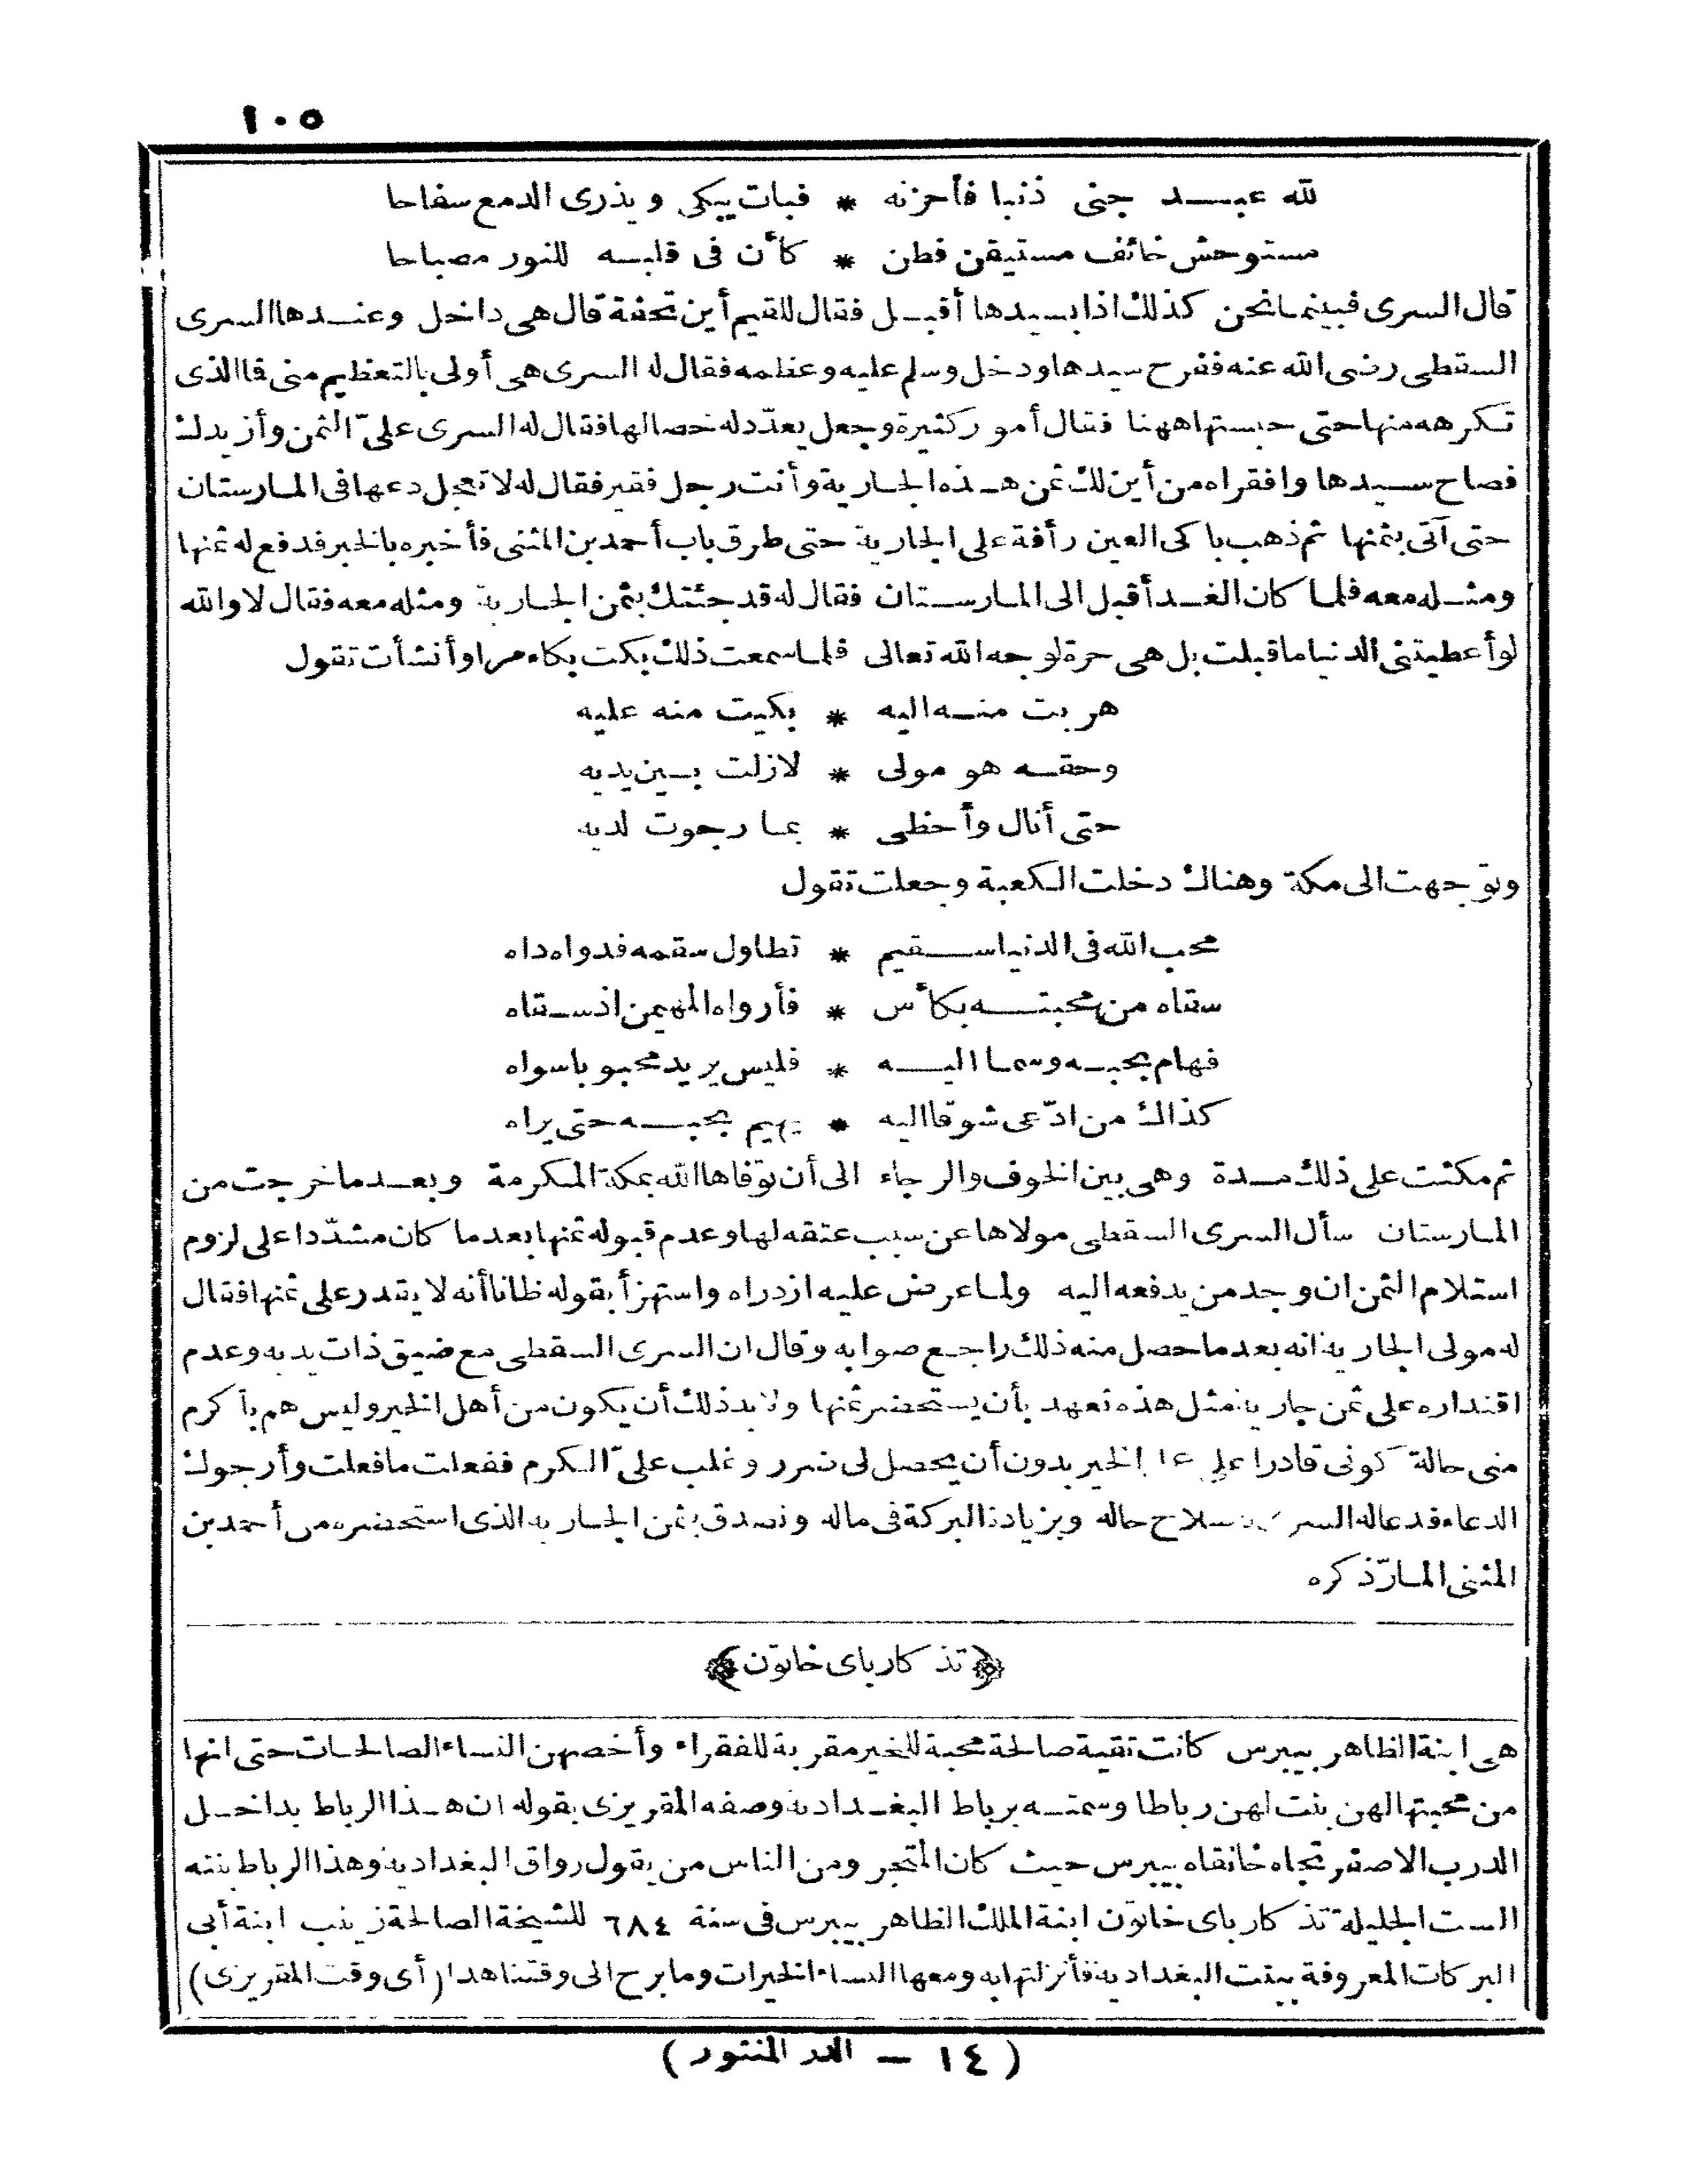 ١٠٥
لله عبد جنى ذنبا فأحزنه * فبات يبكى ويذرى الدمع سفاحا
مستوحش خائف مستيقن فطن * كأن فى قلبه للنور مصباحا
قال السرى فبينما نحن كذلك اذا بسيدها أقبل فقال للقيم أين تحفة قال هى داخل وعندها السرى
السقطى رضى الله عنه ففرح سيدها ودخل وسلم عليه وعظمه فقال له السرى هى أولى بالتعظيم منى فما الذى
تكرهه منها حتى حبستها ههنا فقال أمور كثيرة وجعل يعدّد له خصالها فقال له السرى علىّ الثمن وأزيدك
فصاح سيدها وافقراه من أين لك ثمن هذه الجارية وأنت رجل فقير فقال له لا تعجل دعها فى المارستان
حتى آتى بثمنها ثم ذهب باكى العين رأفة على الجارية حتى طرق باب أحمد بن المثنى فأخبره بالخبر فدفع له ثمنها
ومثله معه فلما كان الغد أقبل الى المارستان فقال له قد جئتك بثمن الجارية ومثله معه فقال لا والله
لو أعطيتنى الدنيا ما قبلت بل هى حرة لوجه الله تعالى فلما سمعت ذلك بكت بكاء مرا وأنشأت تقول
هربت منه اليه * بكيت منه عليه
وحقه هو مولى * لازلت بين يديه
حتى أنال وأحظى * بما رجوت لديه
وتوجهت الى مكة وهناك دخلت الكعبة وجعلت تقول
محب الله فى الدنيا سقيم * تطاول سقمه فدواه داه
سقاه من محبته بكأس * فأرواه المهيمن اذ سقاه
فهام بحبه وسما اليه * فليس يريد محبوبا سواه
كذاك من ادّعى شوقا اليه * يهيم بحبه حتى يراه
ثم مكثت على ذلك مدة وهى بين الخوف والرجاء الى أن توفاها الله بمكة المكرمة وبعد ما خرجت من
المارستان سأل السرى السقطى مولاها عن سبب عتقه لها وعدم قبوله ثمنها بعد ما كان مشدّدا على لزوم
استلام الثمن ان وجد من يدفعه اليه ولما عرض عليه ازدراه واستهزأ بقوله ظانا أنه لا يقدر على ثمنها فقال
له مولى الجارية انه بعد ما حصل منه ذلك راجع صوابه وقال ان السرى السقطى مع ضيق ذات يديه وعدم
اقتداره على ثمن جارية مثل هذه تعهد بأن يستحضر ثمنها ولابد ذلك أن يكون من أهل الخير وليس هم بأكرم
منى حالة كونى قادرا على الخير بدون أن يحصل لى ضرر وغلب علىّ الكرم ففعلت ما فعلت وأرجوك
الدعاء فدعا له السرى بصلاح حاله وبزيادة البركة فى ماله وتصدق بثمن الجارية الذى استحضره من أحمد بن
المثنى المارّ ذكره
﴿تذكارباى خاتون﴾
هى ابنة الظاهر بيبرس كانت تقية صالحة محبة للخير مقربة للفقراء وأخصهن النساء الصالحات حتى انها
من محبتها لهن بنت لهن رباطا وسمته برباط البغدادية وصفه المقريزى بقوله ان هذا الرباط بداخل
الدرب الاصفر تجاه خانقاه بيبرس حيث كان المنحر ومن الناس من يقول رواق البغدادية وهذا الرباط بنته
الست الجليلة تذكارباى خاتون ابنة الملك الظاهر بيبرس فى سنة ٦٨٤ للشيخة الصالحة زينب ابنة أبى
البركات المعروفة ببنت البغدادية فأنزلتها به ومعها النساء الخيرات وما برح الى وقتنا هذا (أى وقت المقريزى)
(١٤ — الدر المنثور)